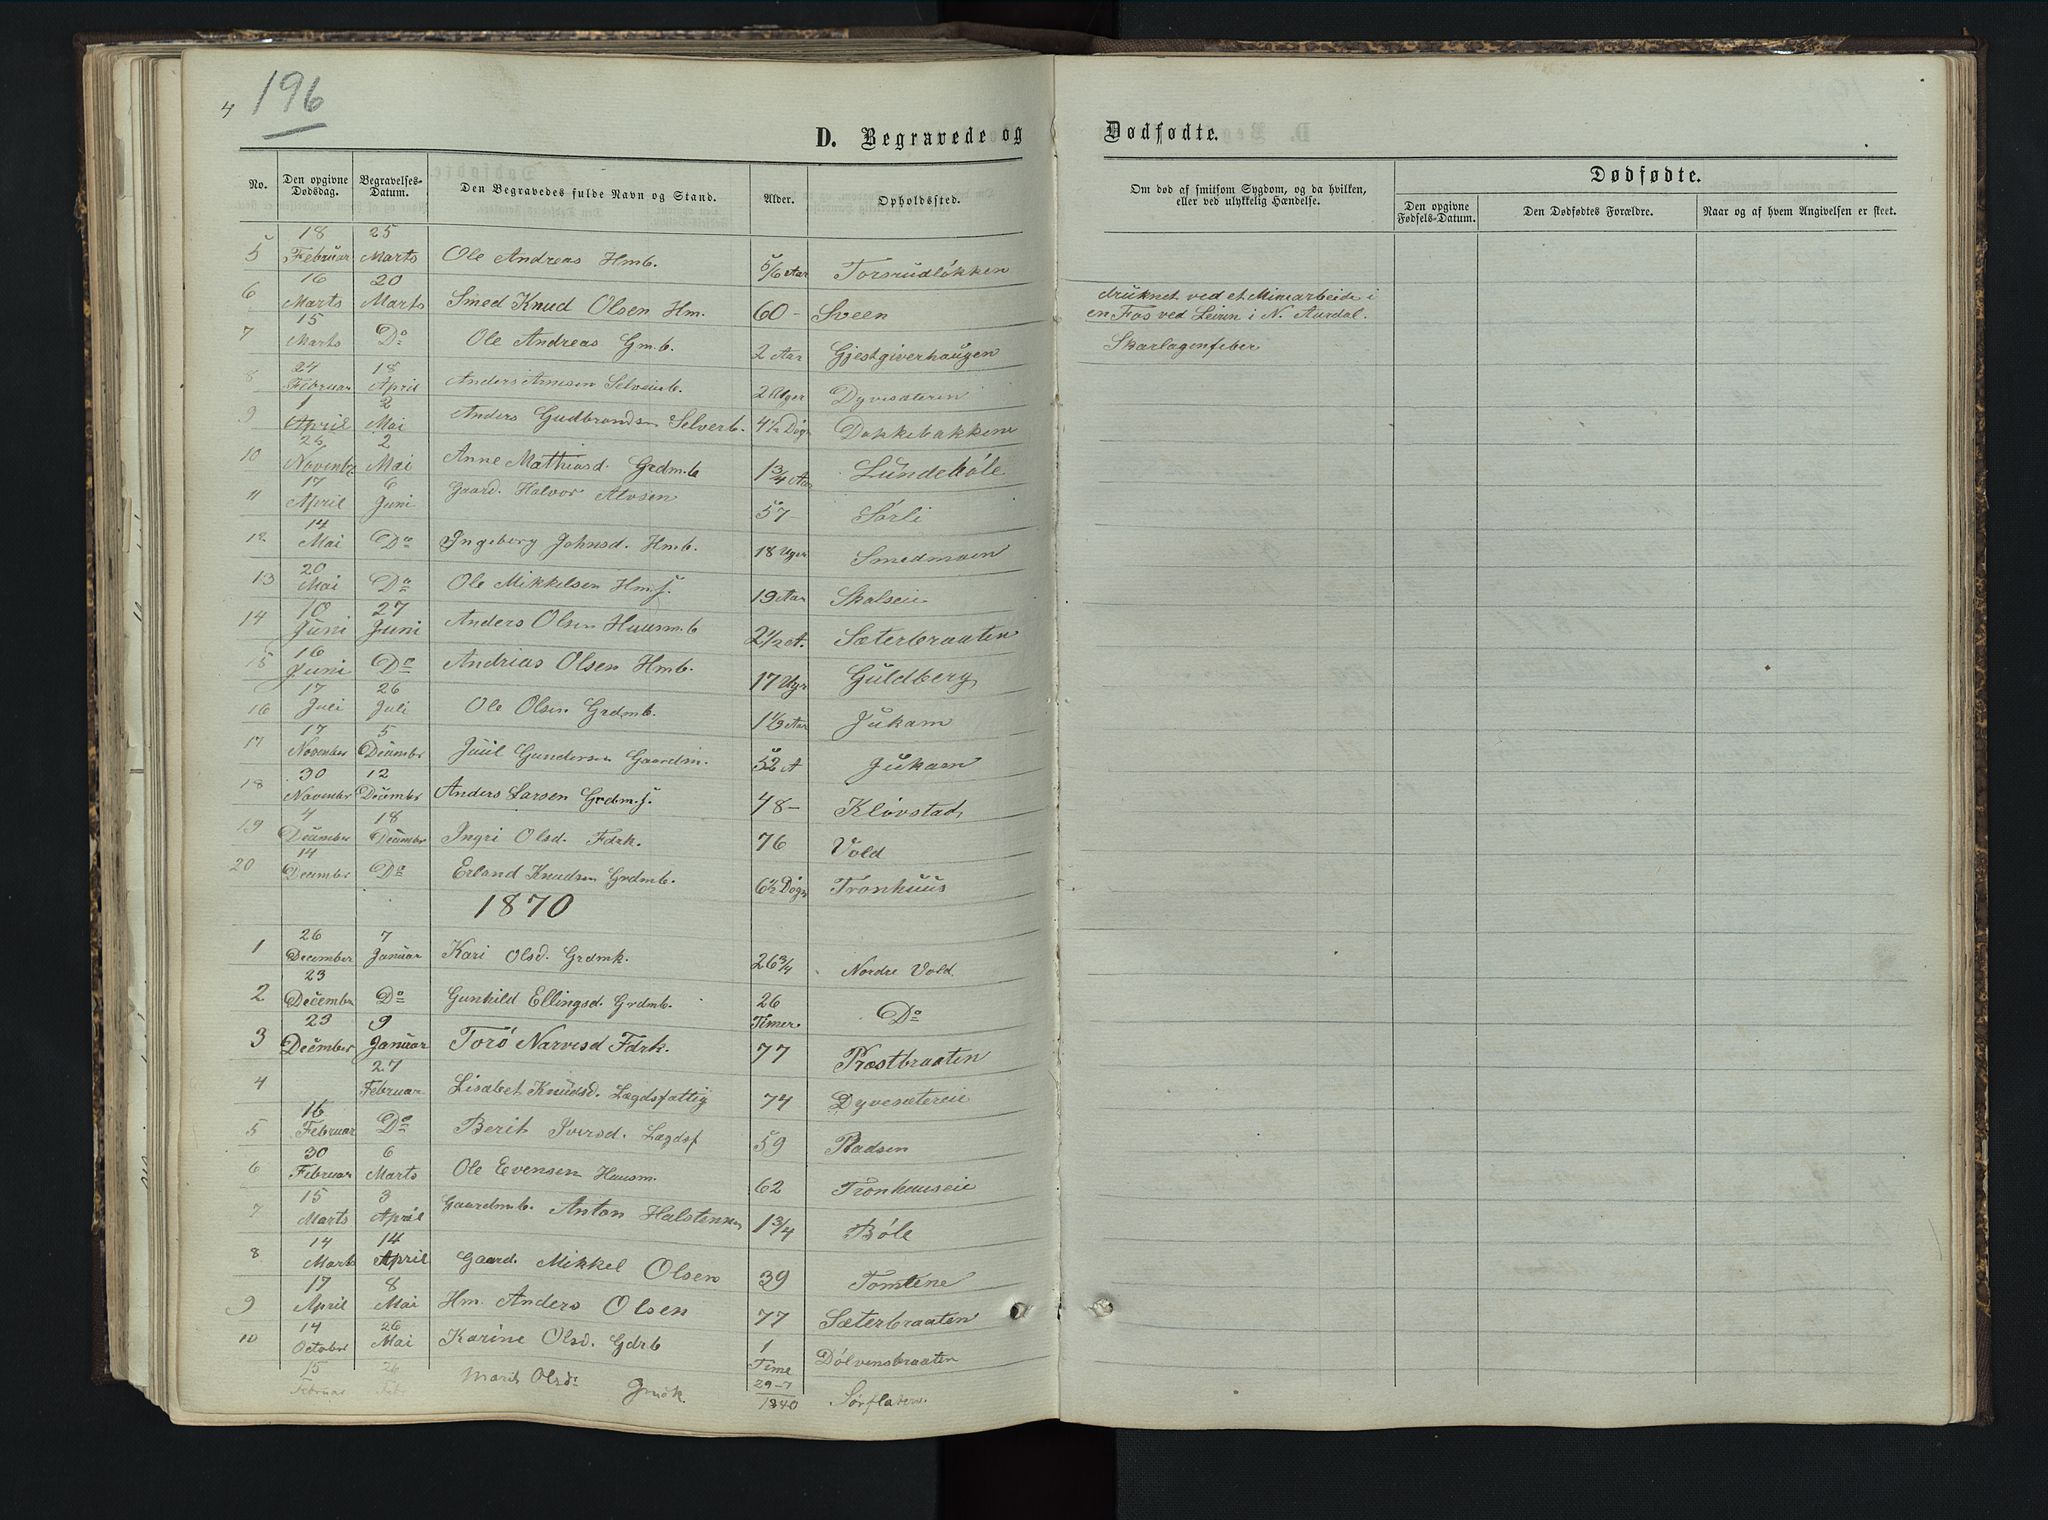 4 196
D. Begravede og Dødfødte.
No. Den opgivne Dødsdag. Begravelses-Datum. Den Begravedes fulde Navn og Stand. Alder. Opholdssted. Om død af smitsom Sygdom, og da hvilken, eller ved ulykkelig Hændelse. Dødfødte.
Den opgivne Fødsels-Datum. Den Dødfødtes Forældre. Naar og af hvem Angivelsen er skeet.
5 18 Februar 25 Marts Ole Andreas Hmb. 5/6 Aar Torsrudløkken
6 16 Marts 20 Marts Smed Knud Olsen Hm. 60 - Sveen druknet ved et Minearbeide i
en Fos ved Leiren i N. Aurdal.
7 15 Marts Do Ole Andreas Gmb. 2 Aar Gjestgiverhaugen Skarlagensfeber
8 24 Februar 18 April Anders Arnesen Selveierb. 2 Uger Dyvesæteren
9 1 April 2 Mai Anders Gudbrandsen Selverb. 4 1/2 Døgn Dokkebakkene
10 26 Novembr 2 Mai Anne Mathiasd. Grdmb 1 3/4 Aar Lundebøle
11 17 April 6 Juni Gaard. Halvor Alvsen 57 - Sørli
12 14 Mai Do Ingeborg Johnsd. Hmb. 18 Uger Smedmoen
13 20 Mai Do Ole Mikkelsen Hmf. 19 Aar Skalseie
14 10 Juni 27 Juni Anders Olsen Huusmb 2 1/2 A. Sæterbraaten
15 16 Juni Do Andrias Olsen Hmb. 17 Ugr Guldberg
16 17 Juli 26 Juli Ole Olsen Grdmb. 1 1/3 Aar Jukam
17 17 November 5 Decembr Juul Gundersen Gaardm. 52 A Jukam
18 30 Novembr 12 Decembr Anders Larsen Grdmf. 48 - Kløvstad
19 7 December 18 Decembr Ingri Olsd. Fdrk. 76 Vold
20 14 December Do Erland Knudsen Grdmb. 6 1/2 Døgn Tronhuus
1870
1 26 December 7 Januar Kari Olsd. Grdmk. 26 3/4 Nordre Vold
2 23 December Do Gunhild Ellingsd. Grdmb. 26 Timer Do
3 23 December 9 Januar Torø Narvesd Fdrk. 77 Præstbraaten
4 27 Februar Lisabet Knudsd. Lægdsfattig 74 Dyvesætereie
5 16 Februar Do Berit Iversd. Lægdsf 59 Radsen
6 30 Februar 6 Marts Ole Evensen Huusm. 62 Tronhuuseie
7 15 Marts 3 April Gaardmb. Anton Halstensen 1 3/4 Bøle
8 14 Marts 14 April Gaard. Mikkel Olsen 39 Tomtene
9 17 April 8 Mai Hm. Anders Olsen 77 Sæterbraaten
10 14 October 26 Mai Karine Olsd. Gdrb 1 Time Dølvensbraaten
15 Februar 26 Febr Marit Olsdr Gmsk 29-7 1840 Sørflaten.